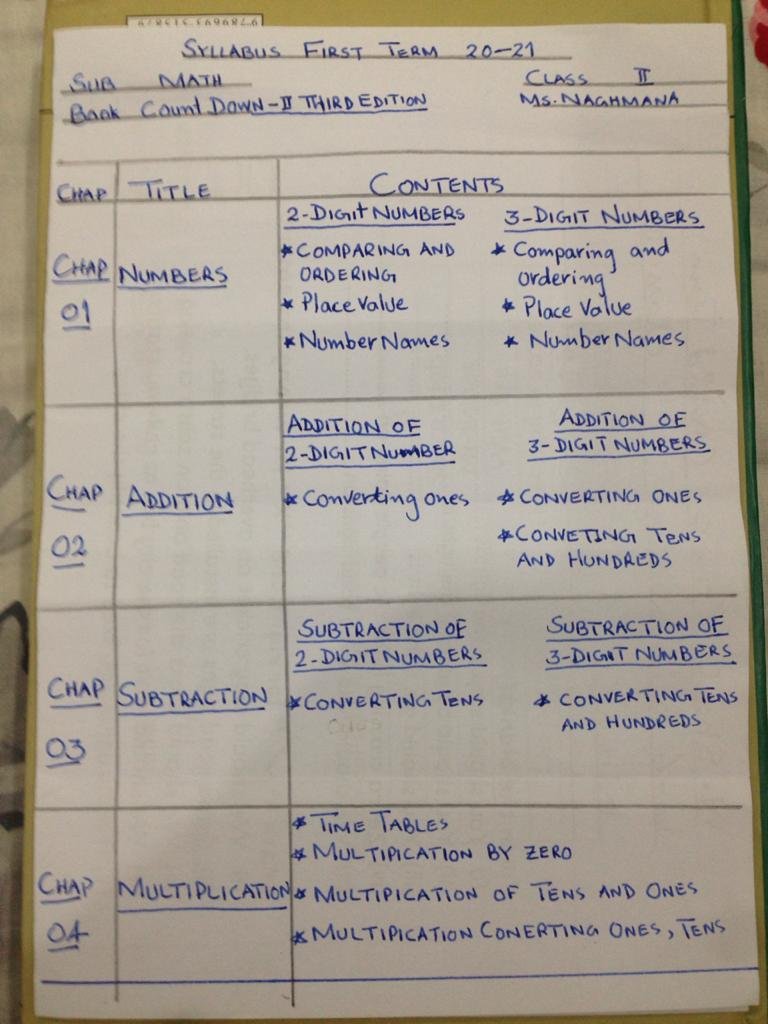 SYLLABUS FIRST TERM 20-21
SUB MATH CLASS II
Book Count Down-II THIRD EDITION MS. NAGHMANA
CHAP TITLE CONTENTS
2-DIGIT NUMBERS 3-DIGIT NUMBERS
CHAP 01 NUMBERS
* COMPARING AND ORDERING
* Place Value
* Number Names
* Comparing and ordering
* Place Value
* Number Names
CHAP 02 ADDITION
ADDITION OF 2-DIGIT NUMBER
* Converting ones
ADDITION OF 3-DIGIT NUMBERS
* CONVERTING ONES
* CONVETING TENS AND HUNDREDS
CHAP 03 SUBTRACTION
SUBTRACTION OF 2-DIGIT NUMBERS
* CONVERTING TENS
SUBTRACTION OF 3-DIGIT NUMBERS
* CONVERTING TENS AND HUNDREDS
CHAP 04 MULTIPLICATION
* TIME TABLES
* MULTIPICATION BY ZERO
* MULTIPICATION OF TENS AND ONES
* MULTIPICATION CONERTING ONES, TENS